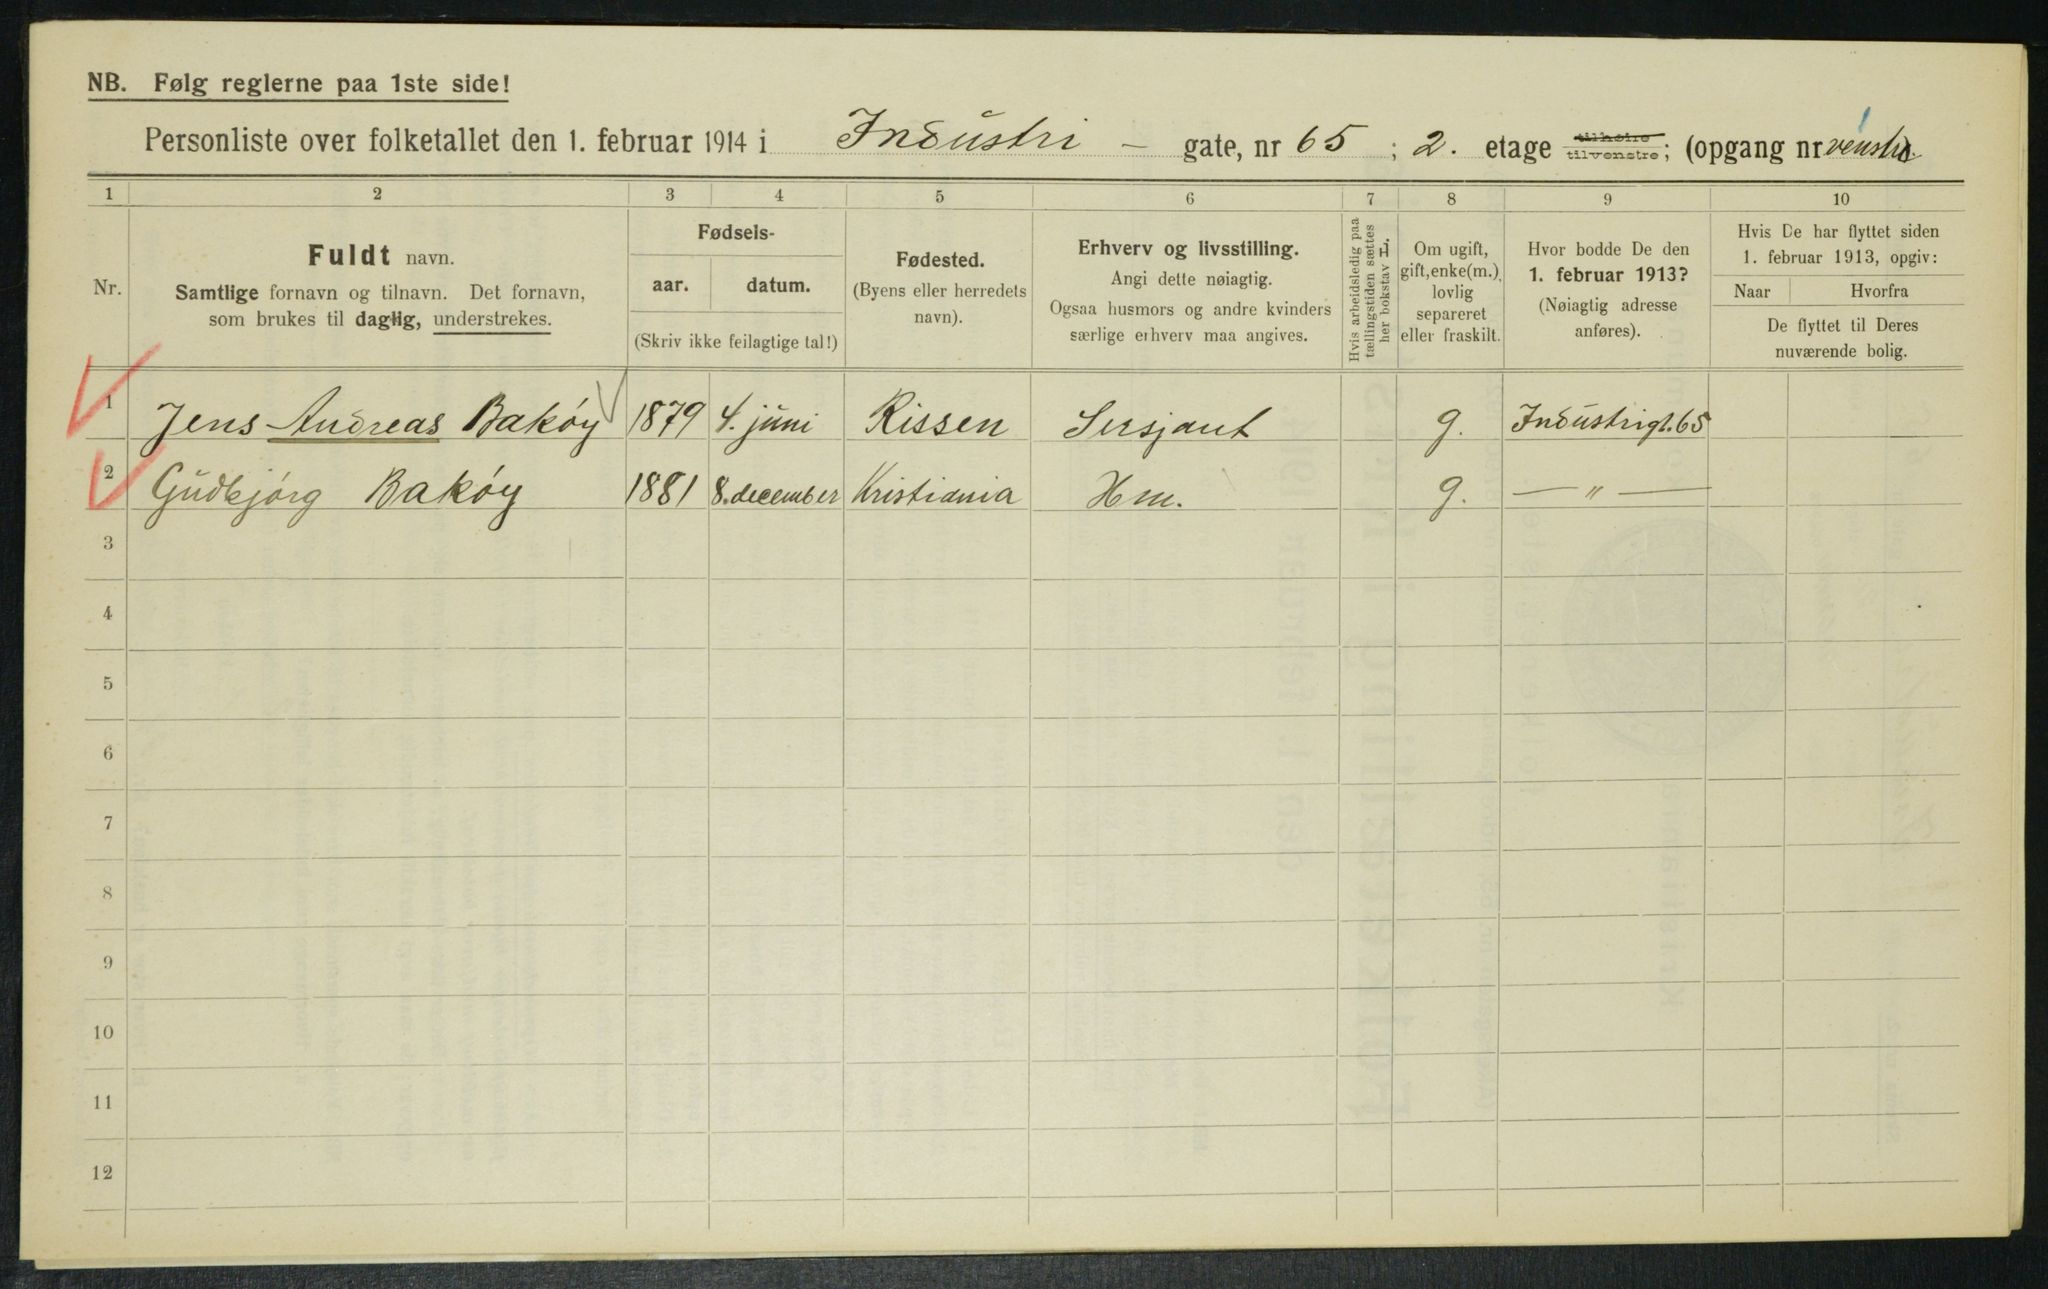 NB. Følg reglerne paa 1ste side!
Personliste over folketallet den 1. februar 1914 i Industri - gate, nr 65; 2. etage tilhøire tilvenstre; (opgang nr venstre.
1 2 3 4 5 6 7 8 9 10
Nr.
Fuldt navn.
Samtlige fornavn og tilnavn. Det fornavn,
som brukes til daglig, understrekes.
Fødsels-
aar. datum.
(Skriv ikke feilagtige tal!)
Fødested.
(Byens eller herredets
navn).
Erhverv og livsstilling.
Angi dette nøiagtig.
Ogsaa husmors og andre kvinders
særlige erhverv maa angives.
Hvis arbeidsledig paa
tællingstiden sættes
her bokstav L.
Om ugift,
gift, enke(m.),
lovlig
separeret
eller fraskilt.
Hvor bodde De den
1. februar 1913?
(Nøiagtig adresse
anføres).
Hvis De har flyttet siden
1. februar 1913, opgiv:
Naar Hvorfra
De flyttet til Deres
nuværende bolig.
1 Jens Andreas Bakøy 1879 4. juni Rissen Sersjant g. Industrigt. 65
2 Gudbjørg Bakøy 1881 8. december Kristiania Hm. g. — " —
3
4
5
6
7
8
9
10
11
12